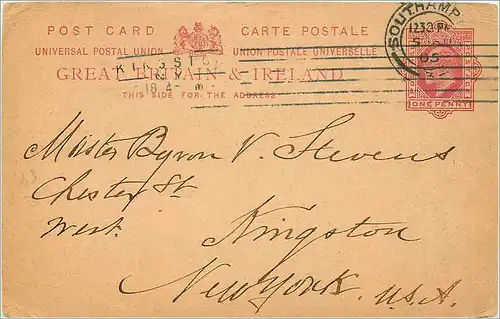 POST CARD CARTE POSTALE
UNIVERSAL POSTAL UNION UNION POSTALE UNIVERSELLE
GREAT BRITAIN & IRELAND
THIS SIDE FOR THE ADDRESS
SOUTHAMP
05
ONE PENNY
Master Byron V. Stevens
Chester St.
West.
Kingston
New York. U.S.A.